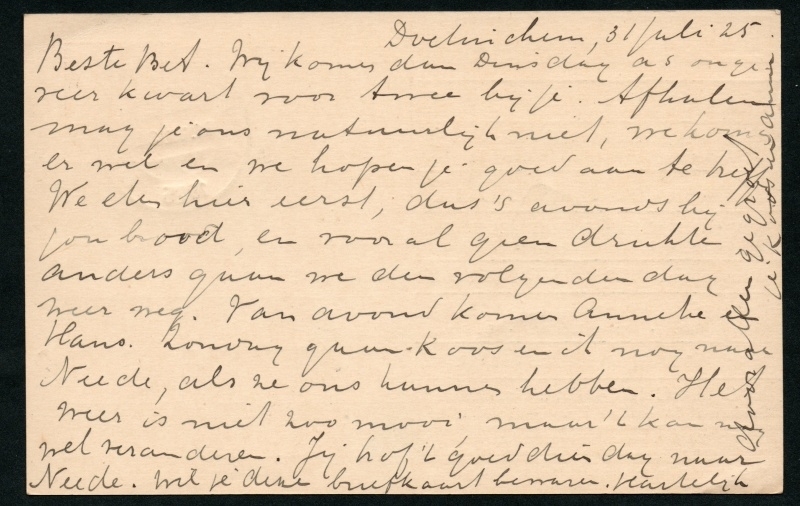 Doetinchem, 31 Juli 25.
Beste Bet. Wij komen dan Dinsdag as onge
veer kwart voor twee bij je. Afhalen
mag je ons natuurlijk niet, we kom
er wel en we hopen je goed aan te treff
We eten hier eerst, dus 's avonds bij
jou brood, en vooral geen drukte
anders gaan we den volgenden dag
weer weg. Van avond komen Anneke en
Hans. Zondag gaan Koos en ik nog naar
Neede, als ze ons kunnen hebben. Het
weer is niet zoo mooi maar 't kan n
wel veranderen. Jij trof 't goed dien dag naar
Neede. Wil je deze briefkaart bewaren. Hartelijk
voor allen gegroet
je Koos en